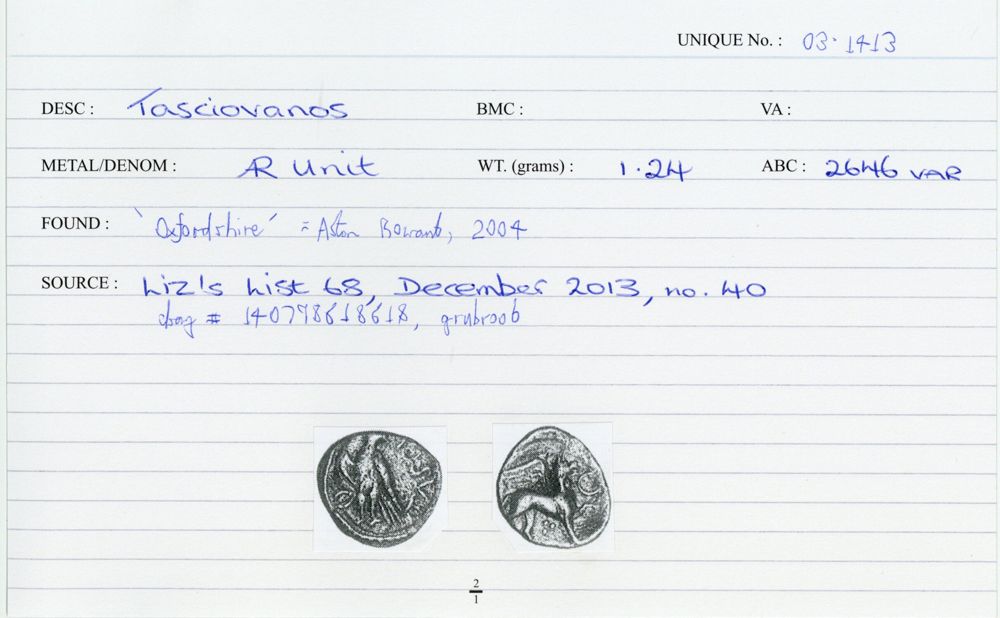 UNIQUE No. : 03·1413
DESC : Tasciovanos BMC : VA :
METAL/DENOM : AR Unit WT. (grams) : 1·24 ABC : 2646 VAR
FOUND : 'Oxfordshire' = Aston Rowant, 2004
SOURCE : Liz's List 68, December 2013, no. 40
ebay # 140778618618,
2
1